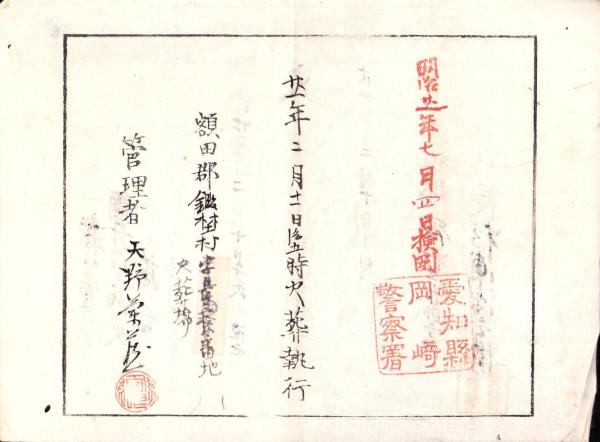 明治廿一年七月四日検閲
愛知縣
岡崎
警察署
廿一年二月十一日后五時火葬執行
額田郡
村字
番地
火葬場
管理者 天野